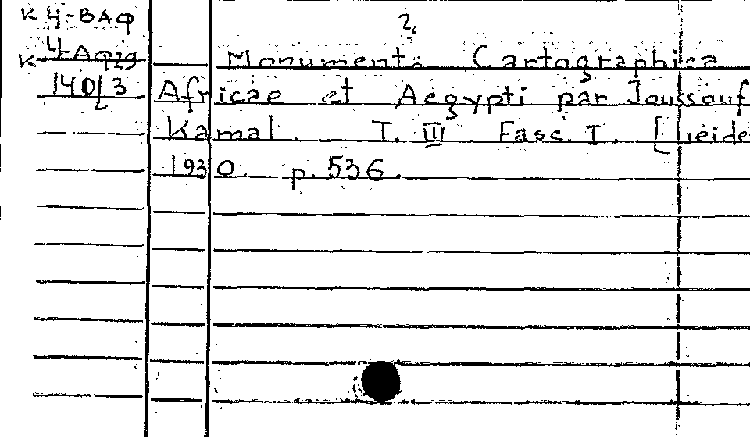 K 4-BAQ
2.
K 4-Aq29 Monumenta Cartographica
140/3 Africae et Aegypti par Joussouf
Kamal. T. III Fasc. I. [Leide
1930. p. 536.